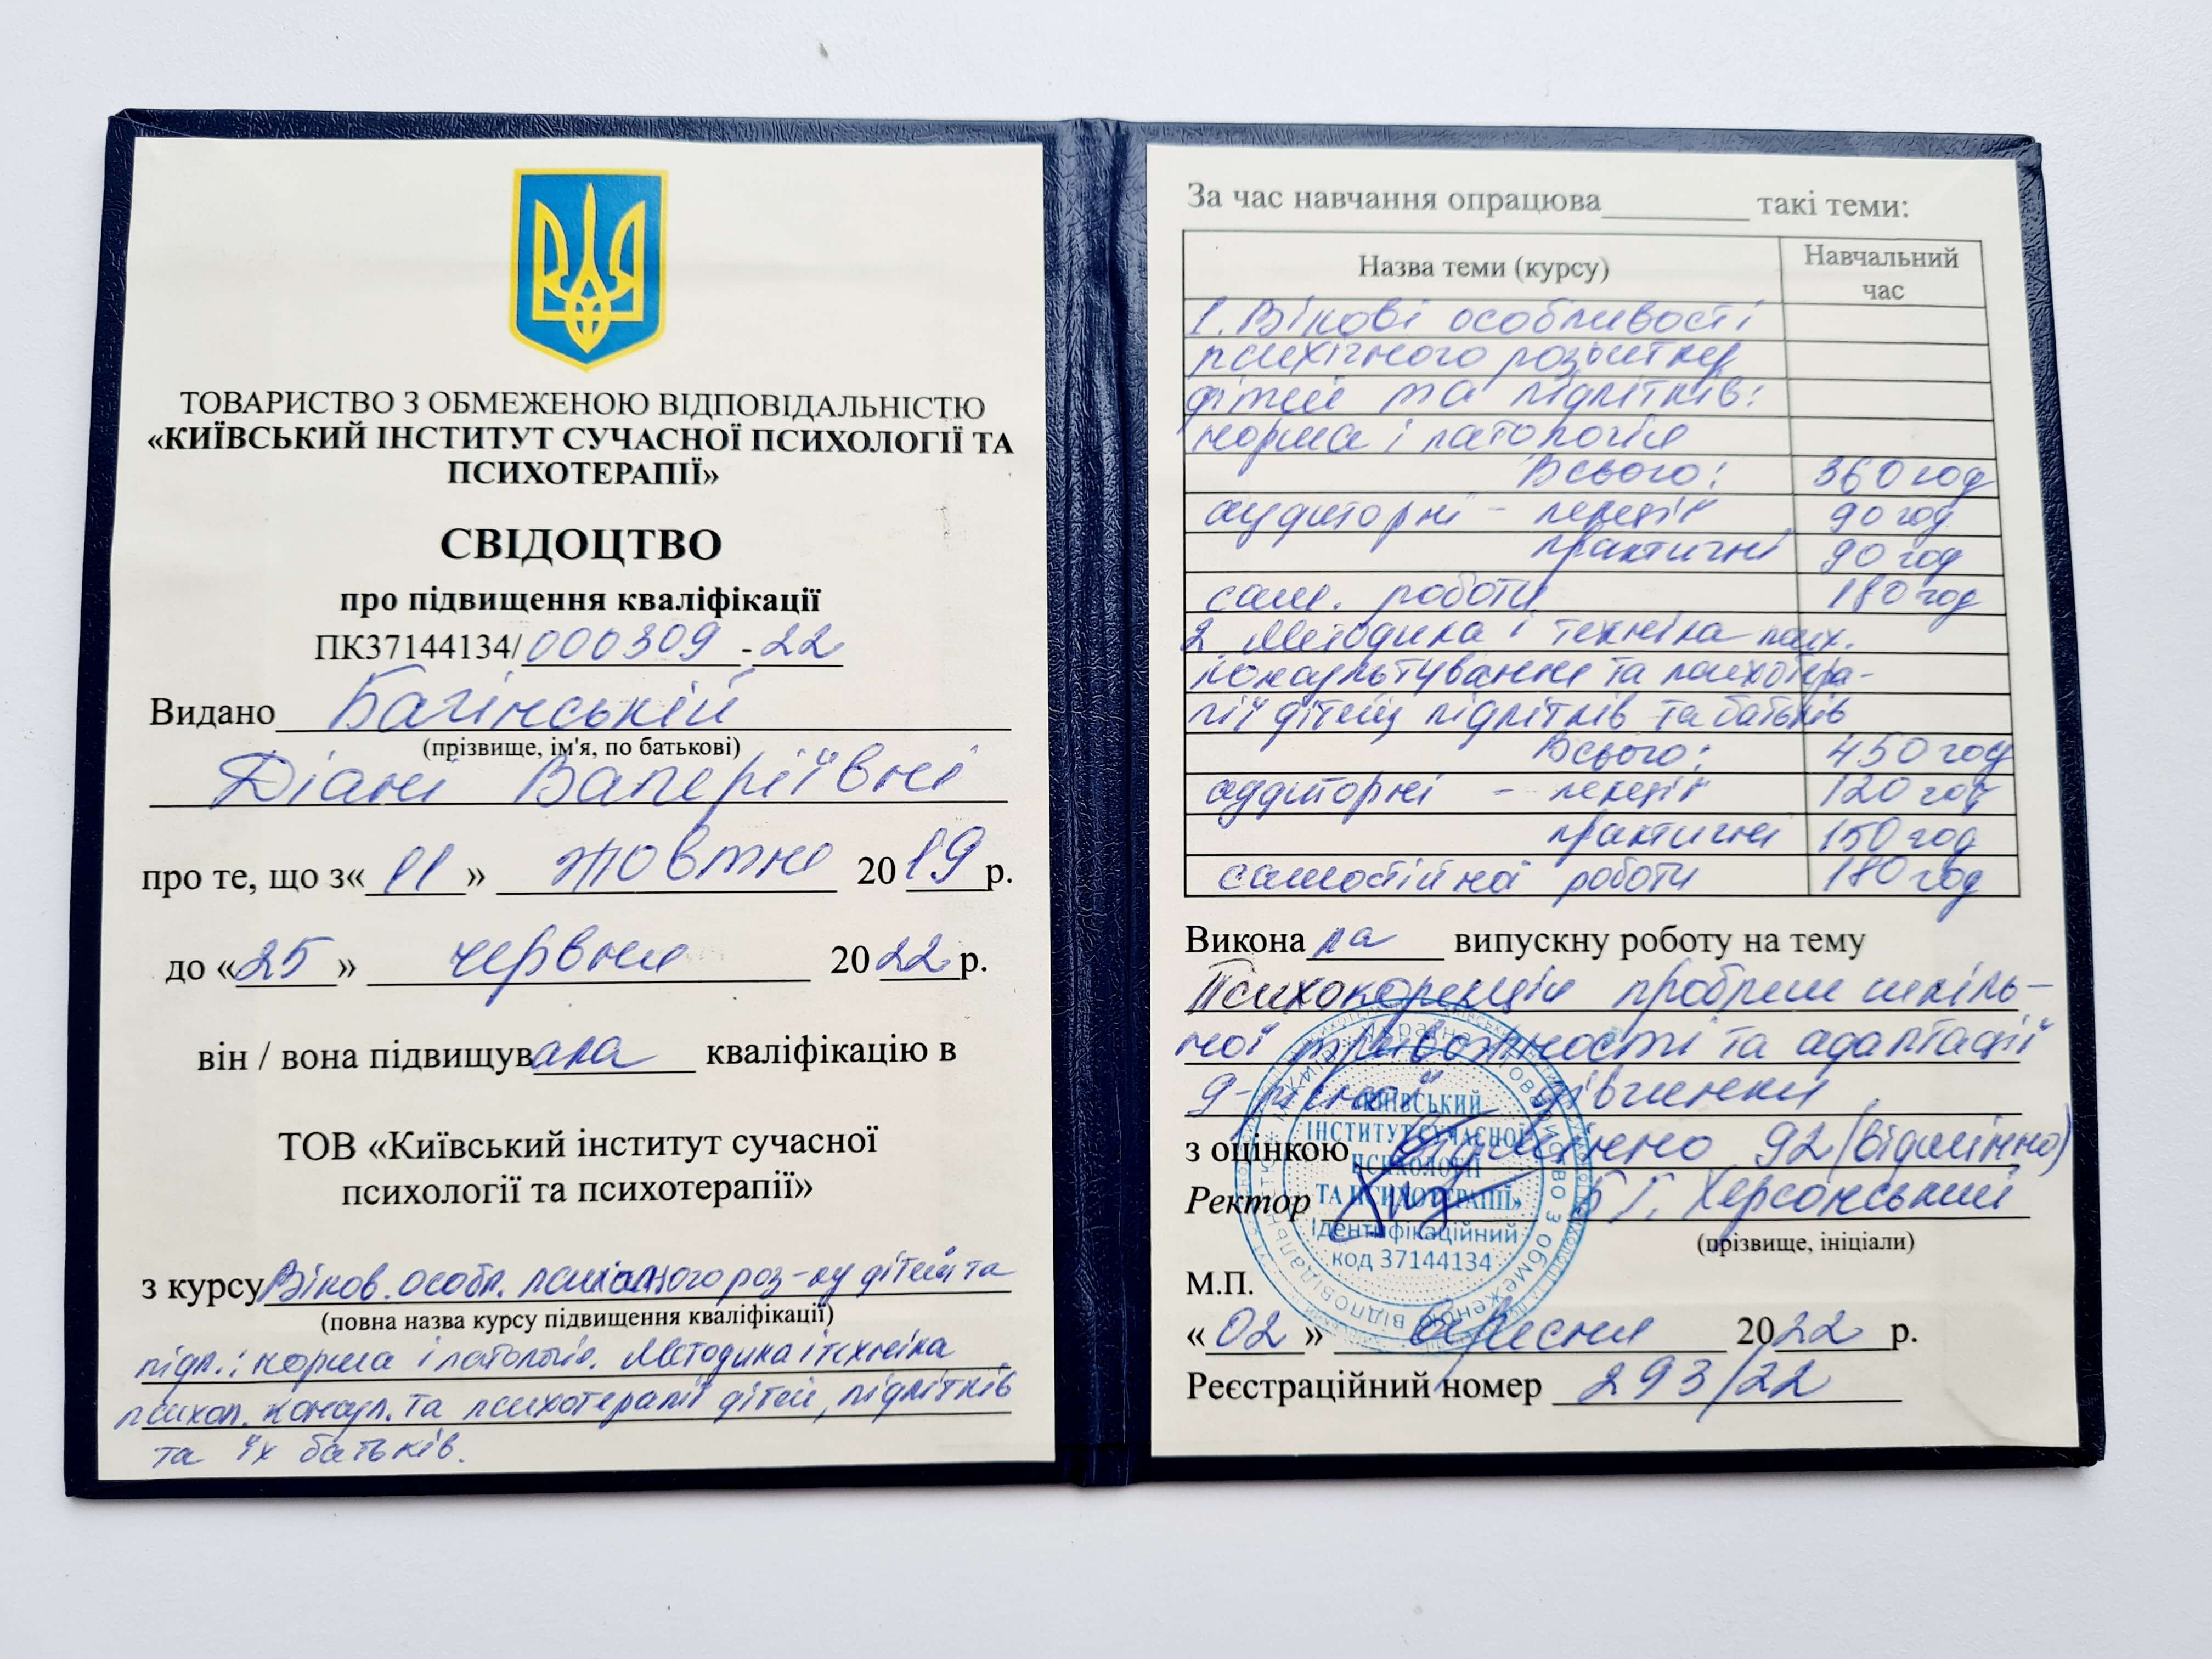 ТОВАРИСТВО З ОБМЕЖЕНОЮ ВІДПОВІДАЛЬНІСТЮ
«КИЇВСЬКИЙ ІНСТИТУТ СУЧАСНОЇ ПСИХОЛОГІЇ ТА
ПСИХОТЕРАПІЇ»
СВІДОЦТВО
про підвищення кваліфікації
ПК37144134/000309-22
Видано Багінській
(прізвище, ім'я, по батькові)
Діані Валеріївні
про те, що з«11» жовтня 2019р.
до «25» червня 2022р.
він / вона підвищувала кваліфікацію в
ТОВ «Київський інститут сучасної
психології та психотерапії»
з курсу Віков. особл. психічного роз-ку дітей та
(повна назва курсу підвищення кваліфікації)
підл.: норма і патологія. Методика і техніка
психол. консул. та психотерапії дітей, підлітків
та їх батьків.
За час навчання опрацюва________ такі теми:
Назва теми (курсу) Навчальний
час
1. Вікові особливості
психічного розвитку
дітей та підлітків:
норма і патологія
Всього: 360 год
аудиторні - лекція 90 год
практичні 90 год
сам. роботи 180 год
2 Методика і техніка псих.
консультування та психотера-
пії дітей, підлітків та батьків
Всього: 450 год
аудиторні - лекція 120 год
практичні 150 год
самостійна роботи 180 год
Виконала випускну роботу на тему
Психокорекція проблем шкіль-
ної тривожності та адаптації
9-річної дівчинки
з оцінкою відмінно 92 (відмінно)
Ректор Б Г. Херсонський
(прізвище, ініціали)
М.П.
«02» вересня 2022 р.
Реєстраційний номер 293/22
«КИЇВСЬКИЙ
ІНСТИТУТ СУЧАСНОЇ
ПСИХОЛОГІЇ
ТА ПСИХОТЕРАПІЇ»
Ідентифікаційний
код 37144134